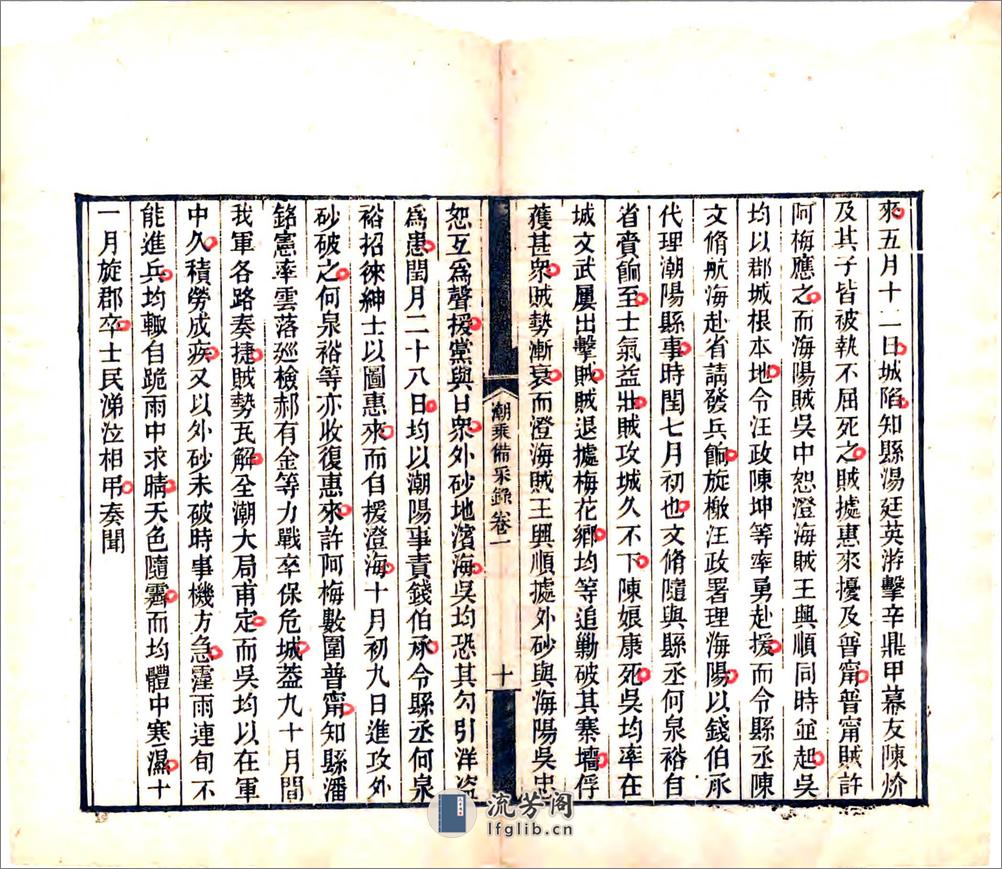 來五月十二日城陷知縣湯廷英游擊辛鼎甲幕友陳炌
及其子皆被執不屈死之賊據惠來擾及普甯普甯賊許
阿梅應之而海陽賊吳中恕澄海賊王興順同時並起吳
均以郡城根本地令汪政陳坤等率勇赴援而令縣丞陳
文脩航海赴省請發兵餉旋檄汪政署理海陽以錢伯承
代理潮陽縣事時閏七月初也文脩隨與縣丞何泉裕自
省賫餉至士氣益壯賊攻城久不下陳娘康死吳均率在
城文武屢出擊賊賊退據梅花鄉均等追勦破其寨墻俘
獲甚衆賊勢漸衰而澄海賊王興順據外砂與海陽吳忠
潮乘備采錄卷一
十
恕互為聲援黨與日衆外砂地濱海吳均恐其勾引洋盜
為患閏月二十八日均以潮陽事責錢伯承令縣丞何泉
裕招徠紳士以圖惠來而自援澄海十月初九日進攻外
砂破之何泉裕等亦收復惠來許阿梅數圍普甯知縣潘
銘憲率雲落巡檢郝有金等力戰卒保危城葢九十月間
我軍各路奏捷賊勢瓦解全潮大局甫定而吳均以在軍
中久積勞成疾又以外砂未破時事機方急霪雨連旬不
能進兵均輙自跪雨中求晴天色隨霽而均體中寒濕十
一月旋郡卒士民涕泣相弔奏聞
流芳阁
lfglib.cn